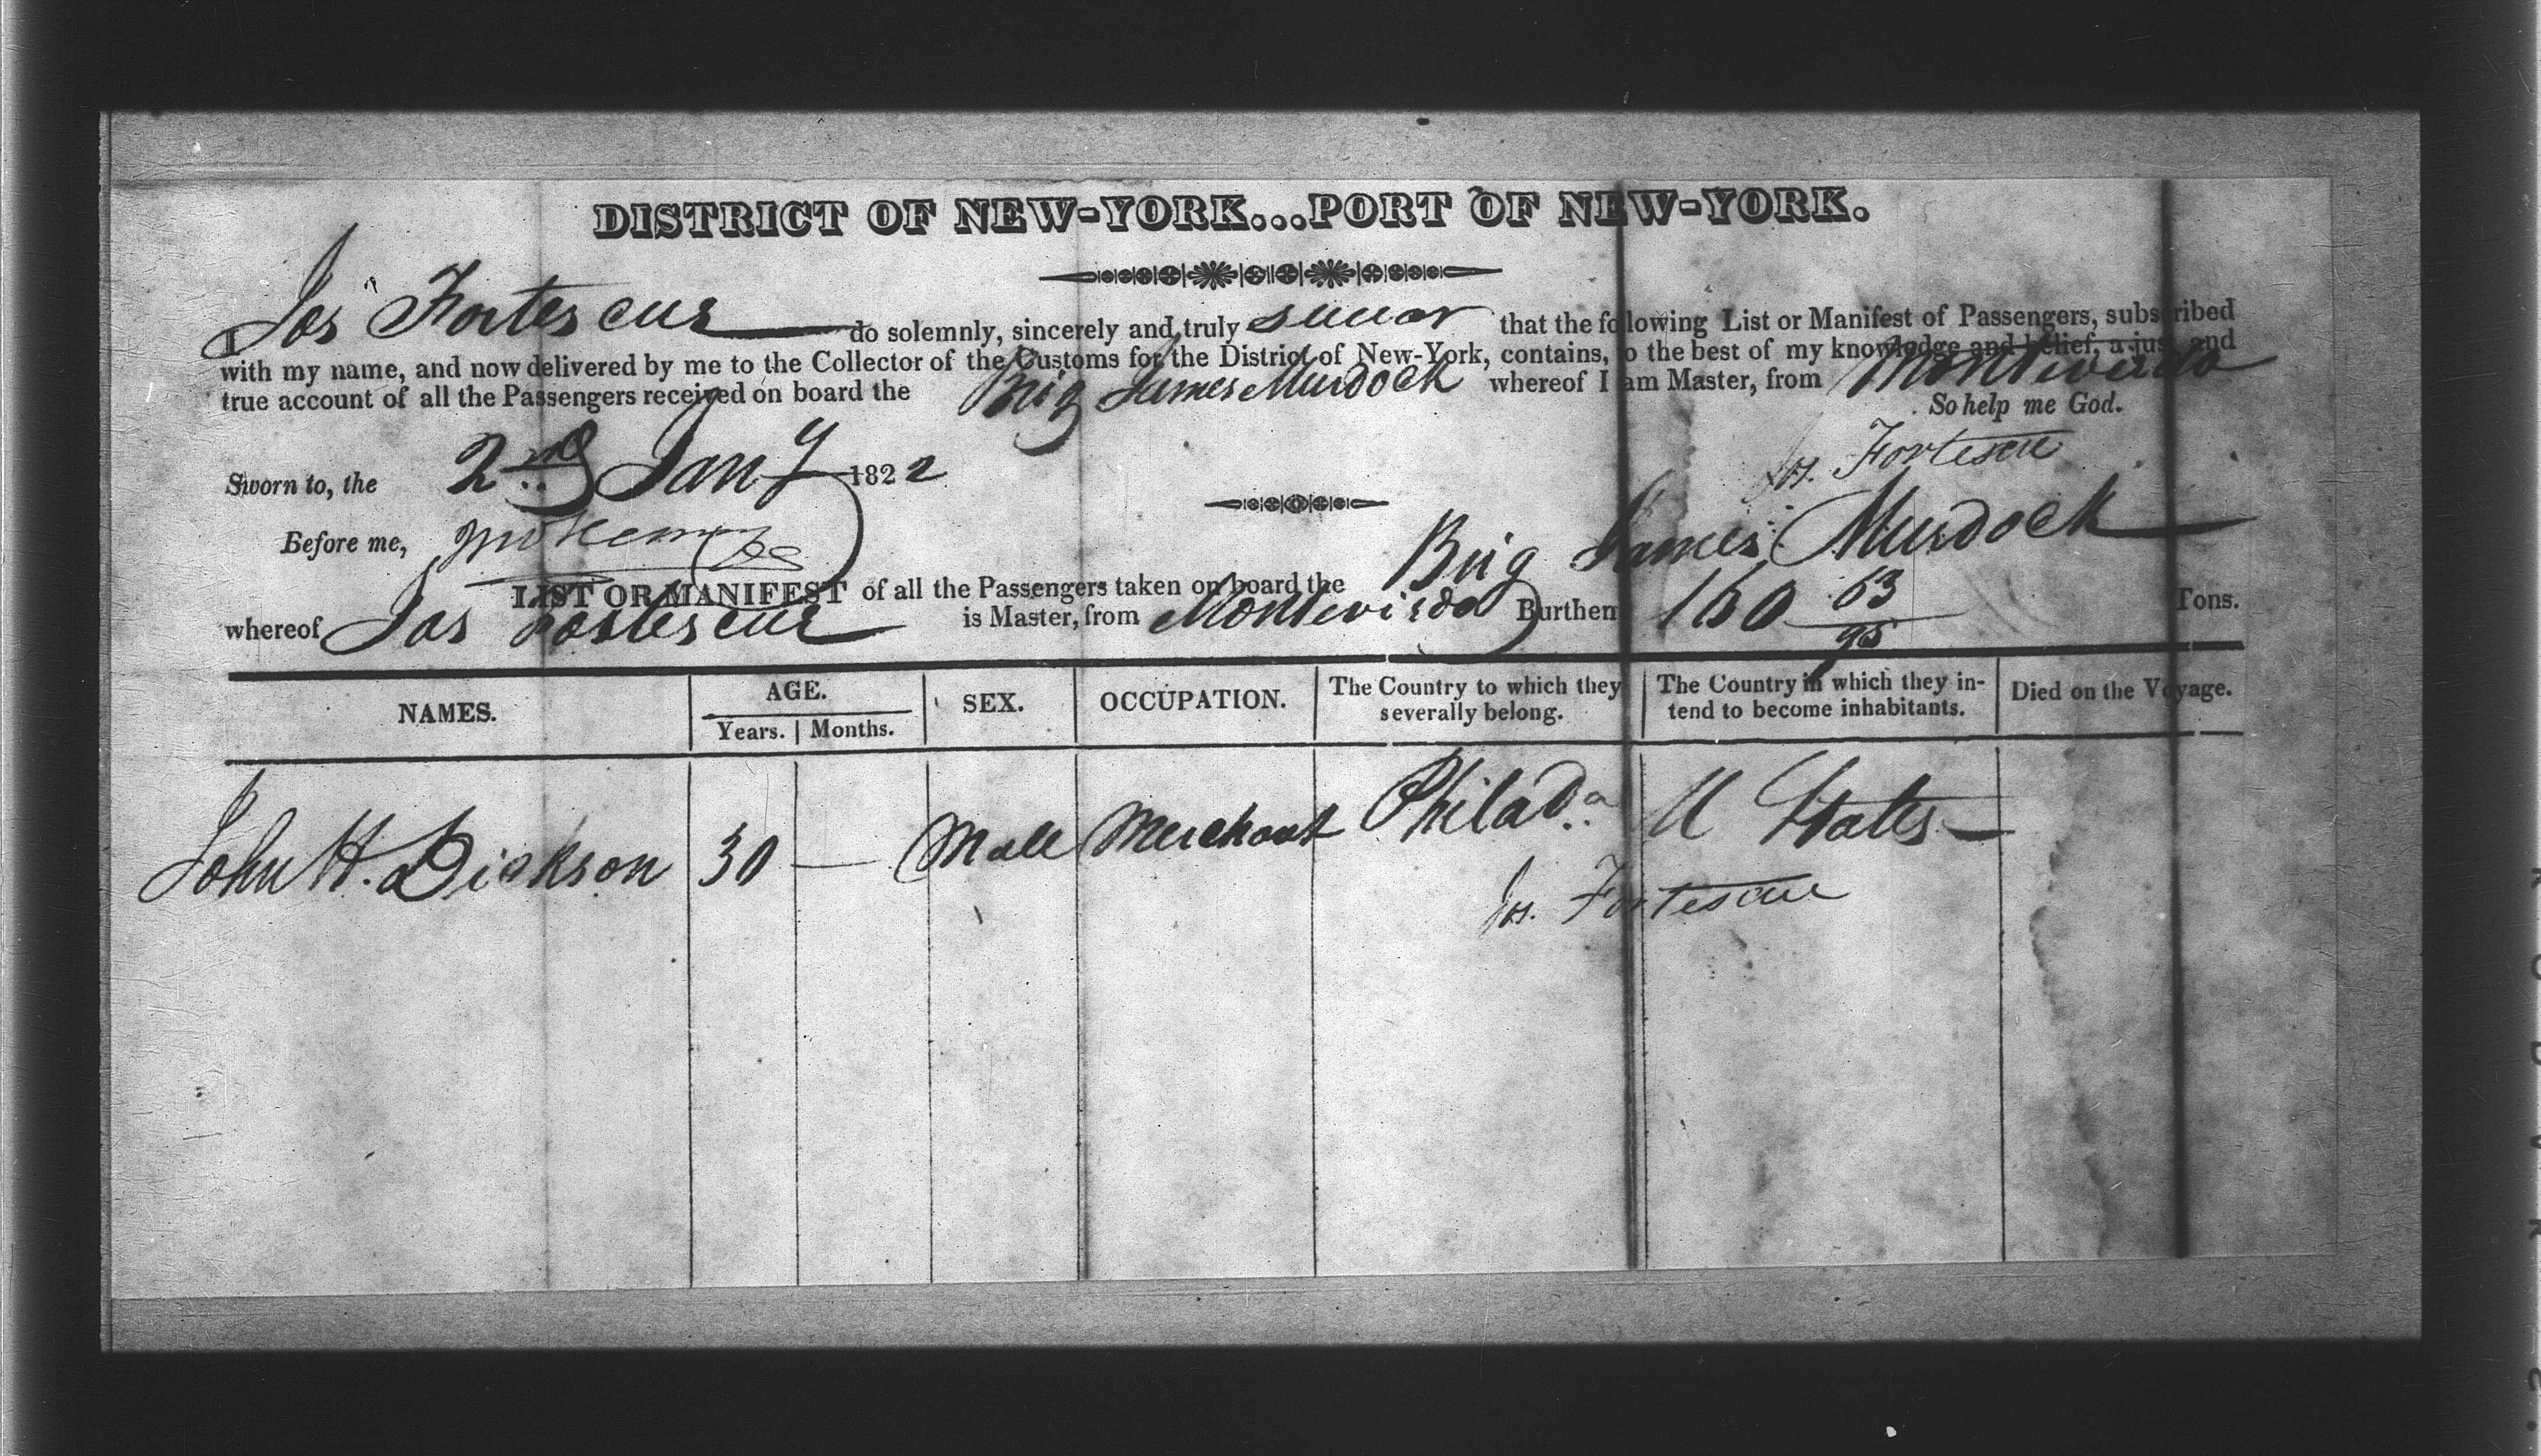 DISTRICT OF NEW-YORK...PORT OF NEW-YORK.
I Jos Fortescue do solemnly, sincerely and truly swear that the following List or Manifest of Passengers, subscribed
with my name, and now delivered by me to the Collector of the Customs for the District of New-York, contains, to the best of my knowledge and belief, a just and
true account of all the Passengers received on board the Brig James Murdock whereof I am Master, from Montevideo
So help me God.
Sworn to, the 2nd Jany 1822
Jos. Fortescue
Before me,
LIST OR MANIFEST of all the Passengers taken on board the Brig James Murdock
whereof Jos Fortescue is Master, from Montevideo Burthen 160 63/95 Tons.
NAMES. AGE. Years. Months. SEX. OCCUPATION. The Country to which they severally belong. The Country in which they intend to become inhabitants. Died on the Voyage.
John H. Dickson 30 — Male Merchant Philada. U States —
Jos. Fortescue